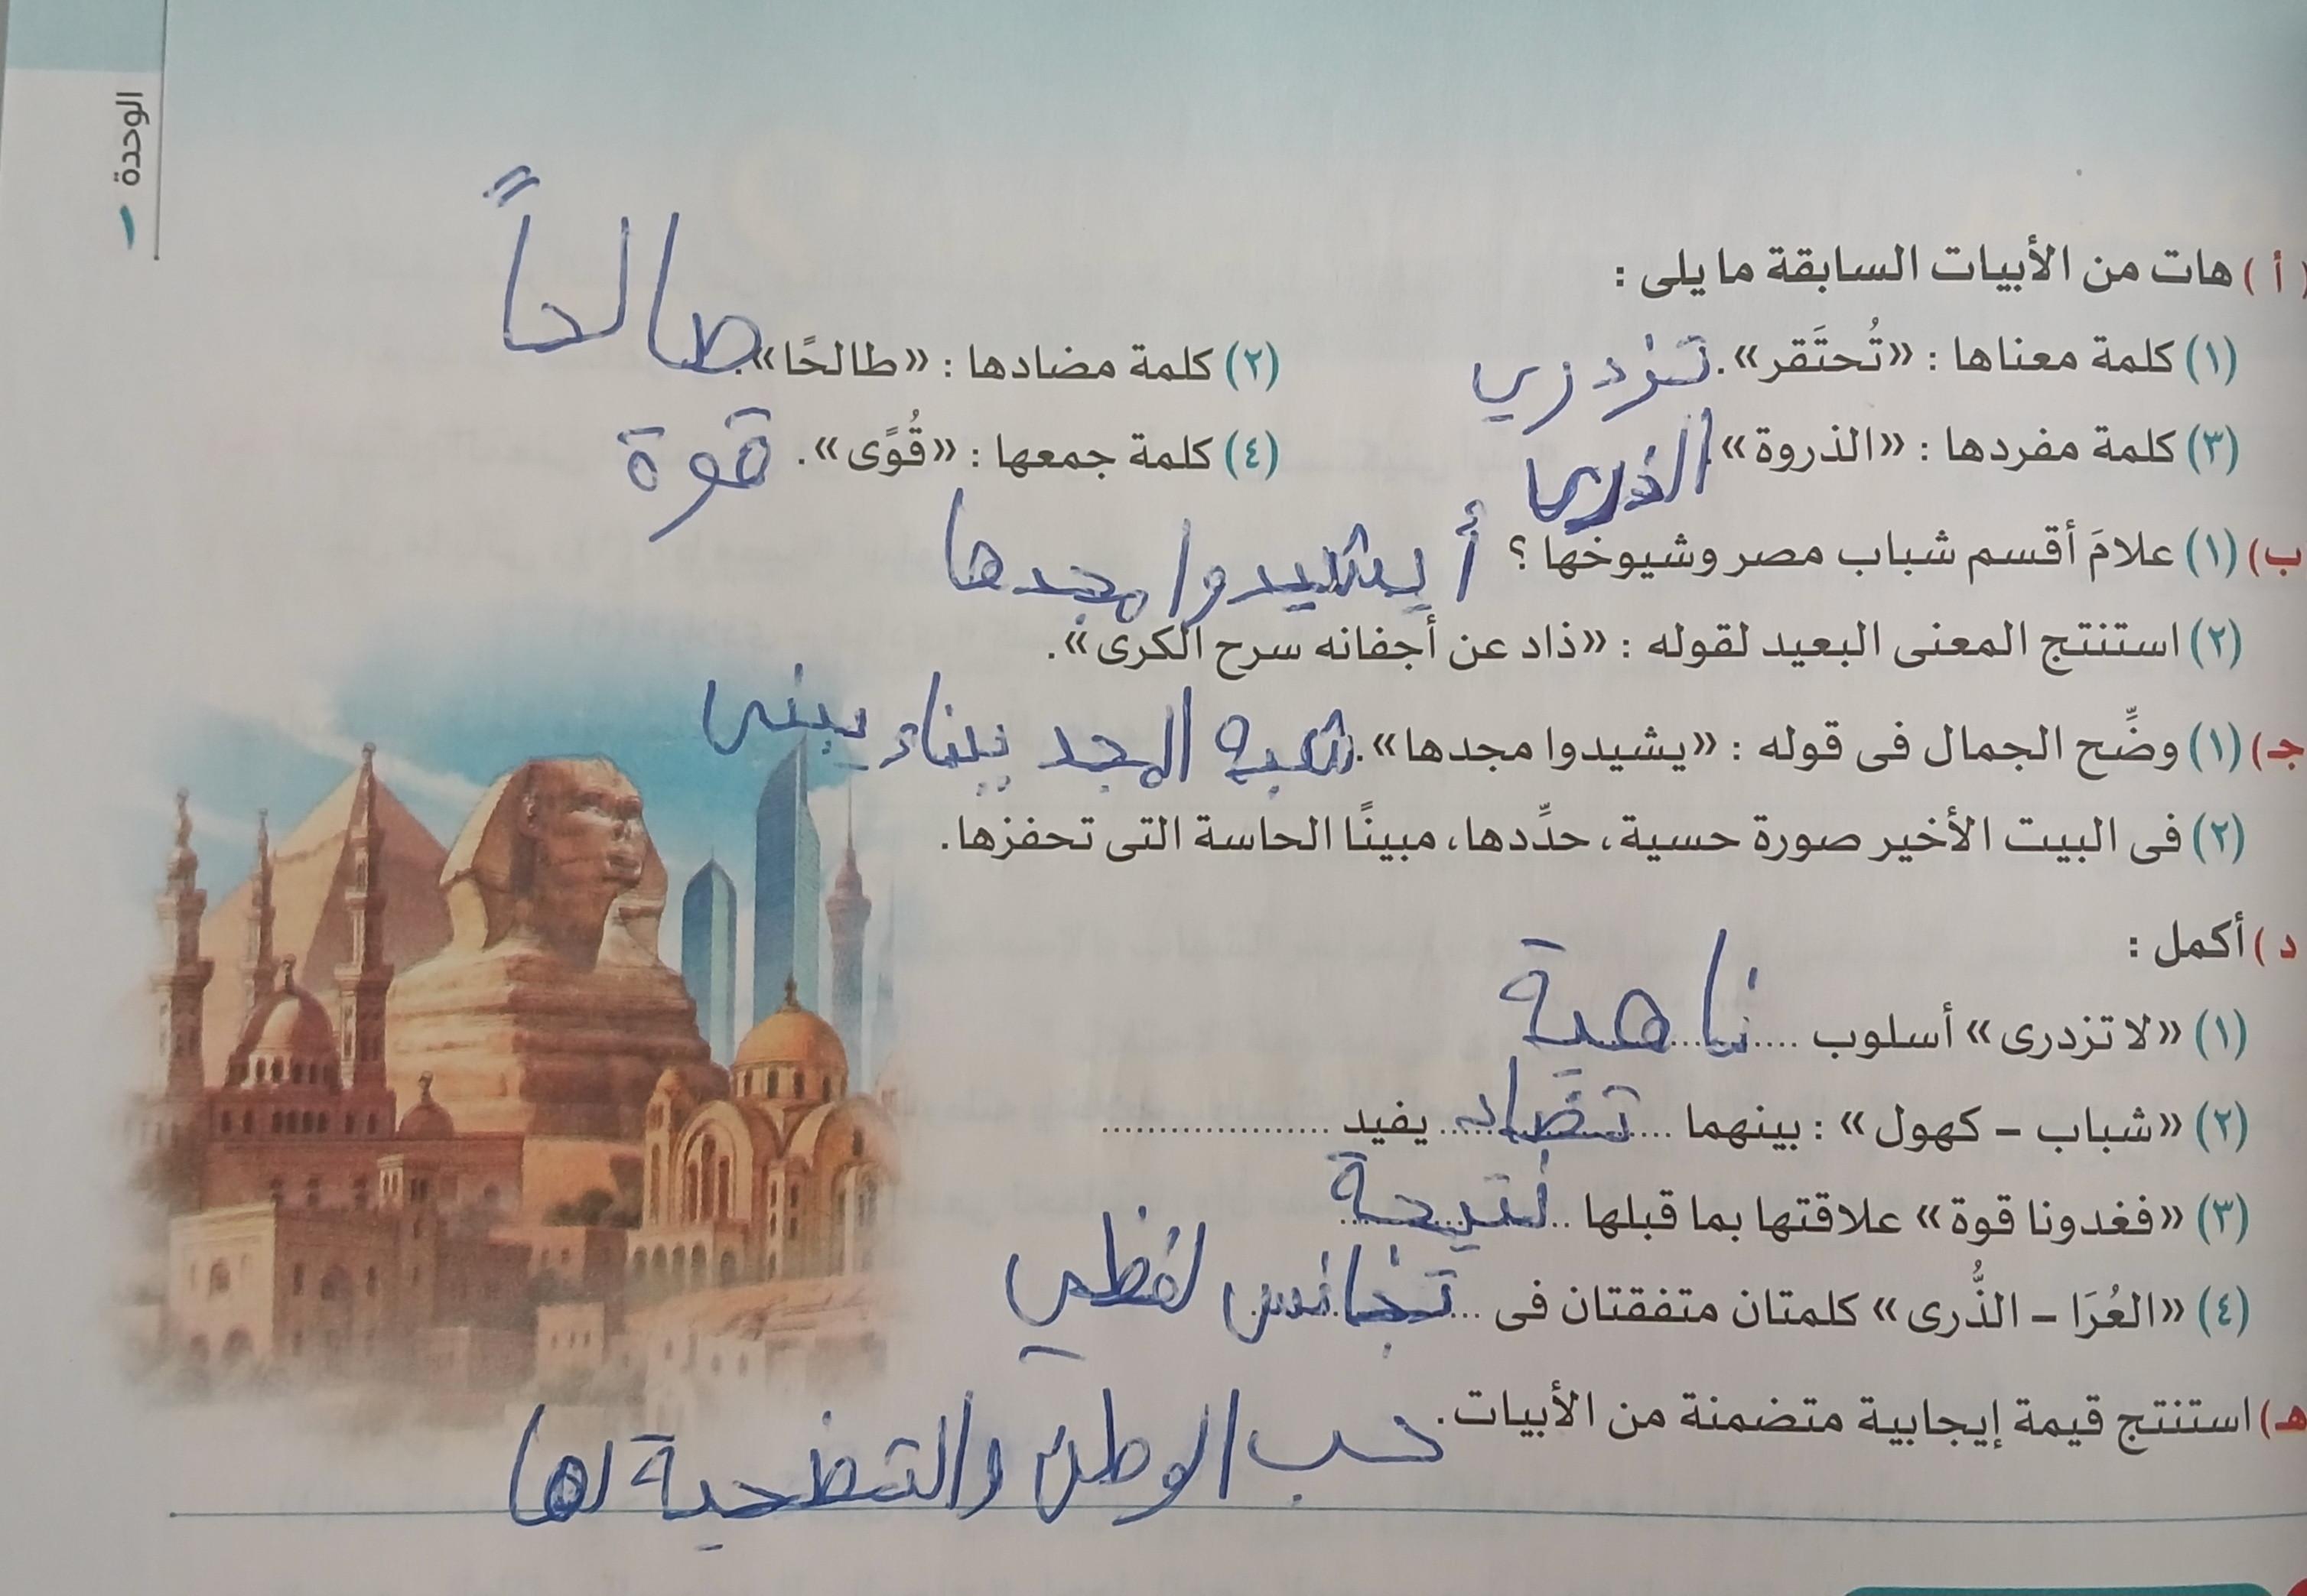 الوحدة ١
( أ ) هات من الأبيات السابقة ما يلى :
(١) كلمة معناها : «تُحتَقر». تزدري (٢) كلمة مضادها : «طالحًا». صالحاً
(٣) كلمة مفردها : «الذروة». الذرى (٤) كلمة جمعها : «قُوًى». قوة
ب) (١) علامَ أقسم شباب مصر وشيوخها ؟ أ يشيدوا مجدها
(٢) استنتج المعنى البعيد لقوله : «ذاد عن أجفانه سرح الكرى».
جـ) (١) وضِّح الجمال فى قوله : «يشيدوا مجدها». شبه المجد ببناء يبنى
(٢) فى البيت الأخير صورة حسية، حدِّدها، مبينًا الحاسة التى تحفزها.
د ) أكمل :
(١) «لا تزدرى» أسلوب ........ ناهية
(٢) «شباب – كهول» : بينهما ........ تضاد ........ يفيد ........
(٣) «فغدونا قوة» علاقتها بما قبلها ........ نتيجة
(٤) «العُرَا – الذُّرى» كلمتان متفقتان فى ........ تجانس لفظي
هـ) استنتج قيمة إيجابية متضمنة من الأبيات. حب الوطن والتضحية لها